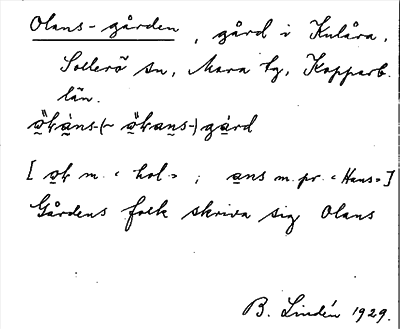 Olans-gården, gård i Kulåra,
Sollerö sn, Mora tg, Kopparb.
län.
ö̀kàns-(~ ö̀kans-)gård
[ ok m. "hol" ; ans m. pr. "Hans" ]
Gårdens folk skriva sig Olans
B. Lindén 1929.